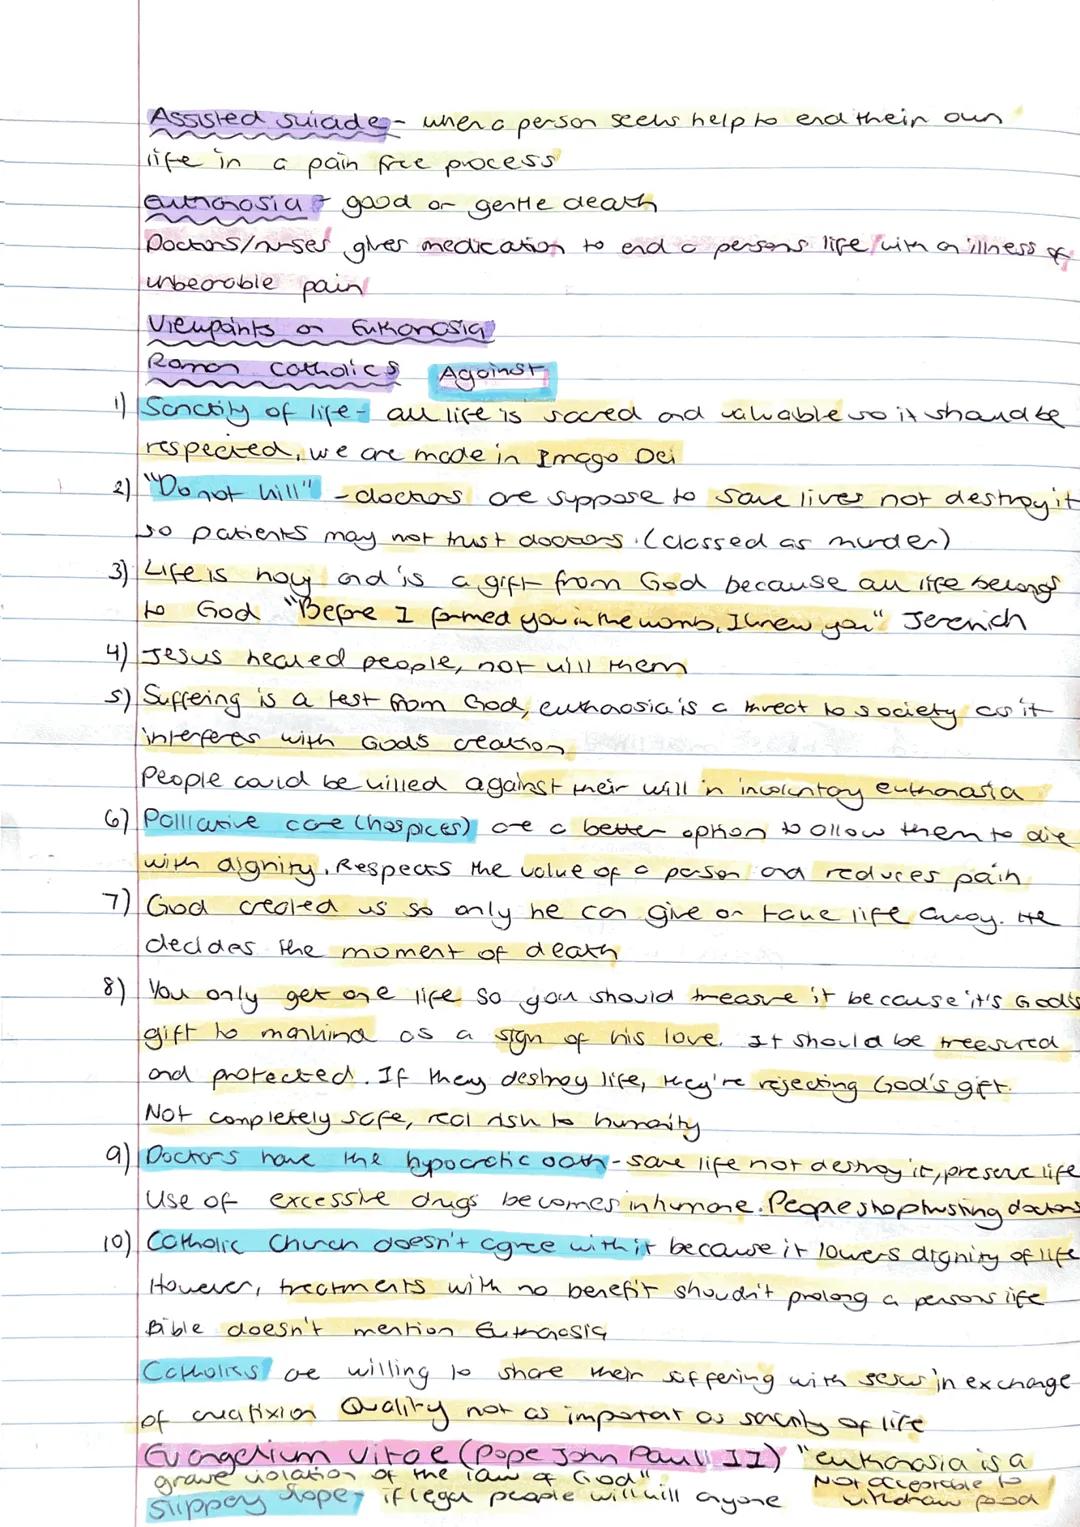 Assisted suicide - when a person seeks help to end their own
life in a pain free process
Euthanasia - good or gentle death
Doctors/nurses gives medication to end a persons life with an illness of
unbearable pain
Viewpoints on Euthanasia
Roman Catholics Against
1) Sanctity of life - all life is sacred and valuable so it should be
respected, we are made in Imago Dei
2) "Do not kill" - doctors are suppose to save lives not destroy it
so patients may not trust doctors. (classed as murder)
3) Life is holy and is a gift from God because all life belongs
to God "Before I formed you in the womb, I knew you" Jeremiah
4) Jesus healed people, not kill them
5) Suffering is a test from God, euthanasia is a threat to society as it
interferes with God's creation
People could be killed against their will in involuntary euthanasia
6) Palliative care (hospices) are a better option to allow them to die
with dignity. Respects the value of a person and reduces pain
7) God created us so only he can give or take life away. He
decides the moment of death
8) You only get one life so you should treasure it because it's God's
gift to mankind as a sign of his love. It should be treesured
and protected. If they destroy life, they're rejecting God's gift.
Not completely safe, real risk to humanity
9) Doctors have the hypocratic oath - save life not destroy it, preserve life
Use of excessive drugs becomes inhumane. People stop trusting doctors
10) Catholic Church doesn't agree with it because it lowers dignity of life
However, treatments with no benefit shouldn't prolong a persons life
Bible doesn't mention Euthanasia
Catholics are willing to share their suffering with Jesus in exchange
of crucifixion Quality not as important as sanctity of life
Evangelium Vitae (Pope John Paul II) "euthanasia is a
grave violation of the law of God" Not acceptable to
Slippery slope - if legal people will kill anyone withdraw food